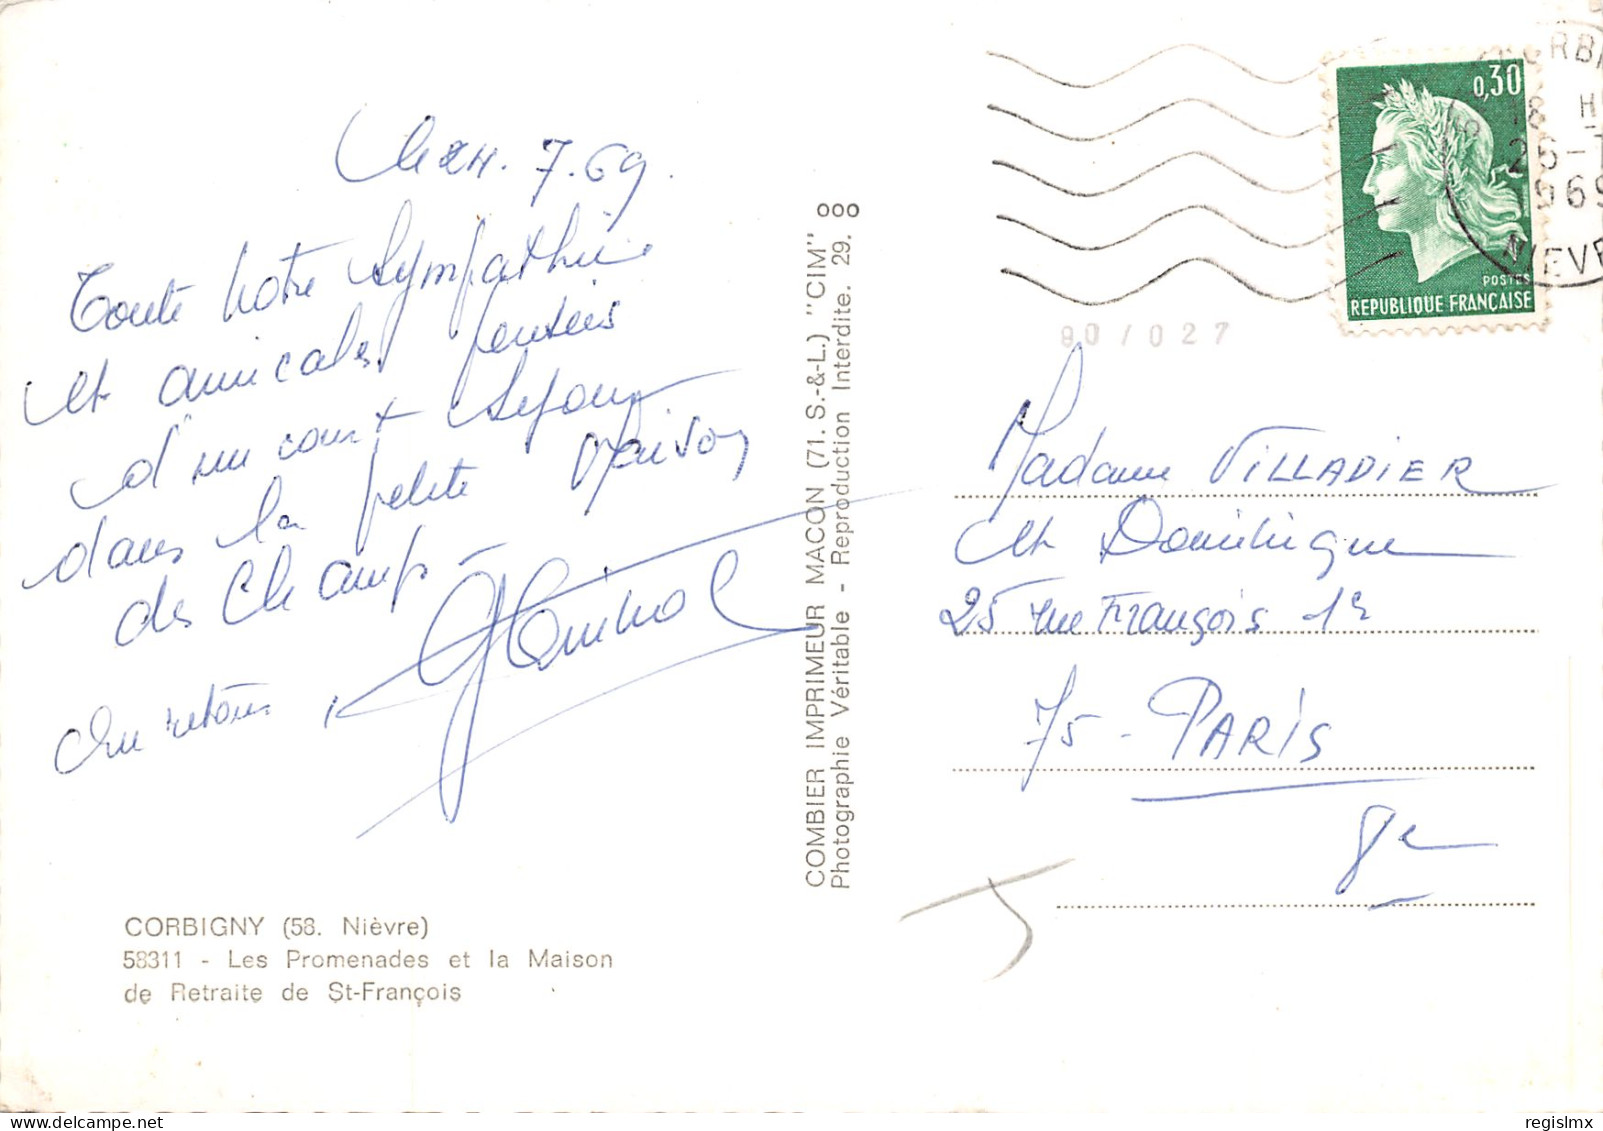 Le 24. 7. 69.
Toute notre sympathie
et amicales pensées
d'un court séjour
dans la petite Maison
des Champs -
Au retour
CORBIGNY (58. Nièvre)
58311 - Les Promenades et la Maison
de Retraite de St-François
COMBIER IMPRIMEUR MACON (71. S.-&-L.) "CIM"
Photographie Véritable - Reproduction Interdite. 29.
000
0,30
POSTES
REPUBLIQUE FRANÇAISE
CORBI
18 H
26-7
1969
NIEVR
80/027
Madame VILLADIER
et Dominique
25 rue François 1er
75 - PARIS
8e
regislmx